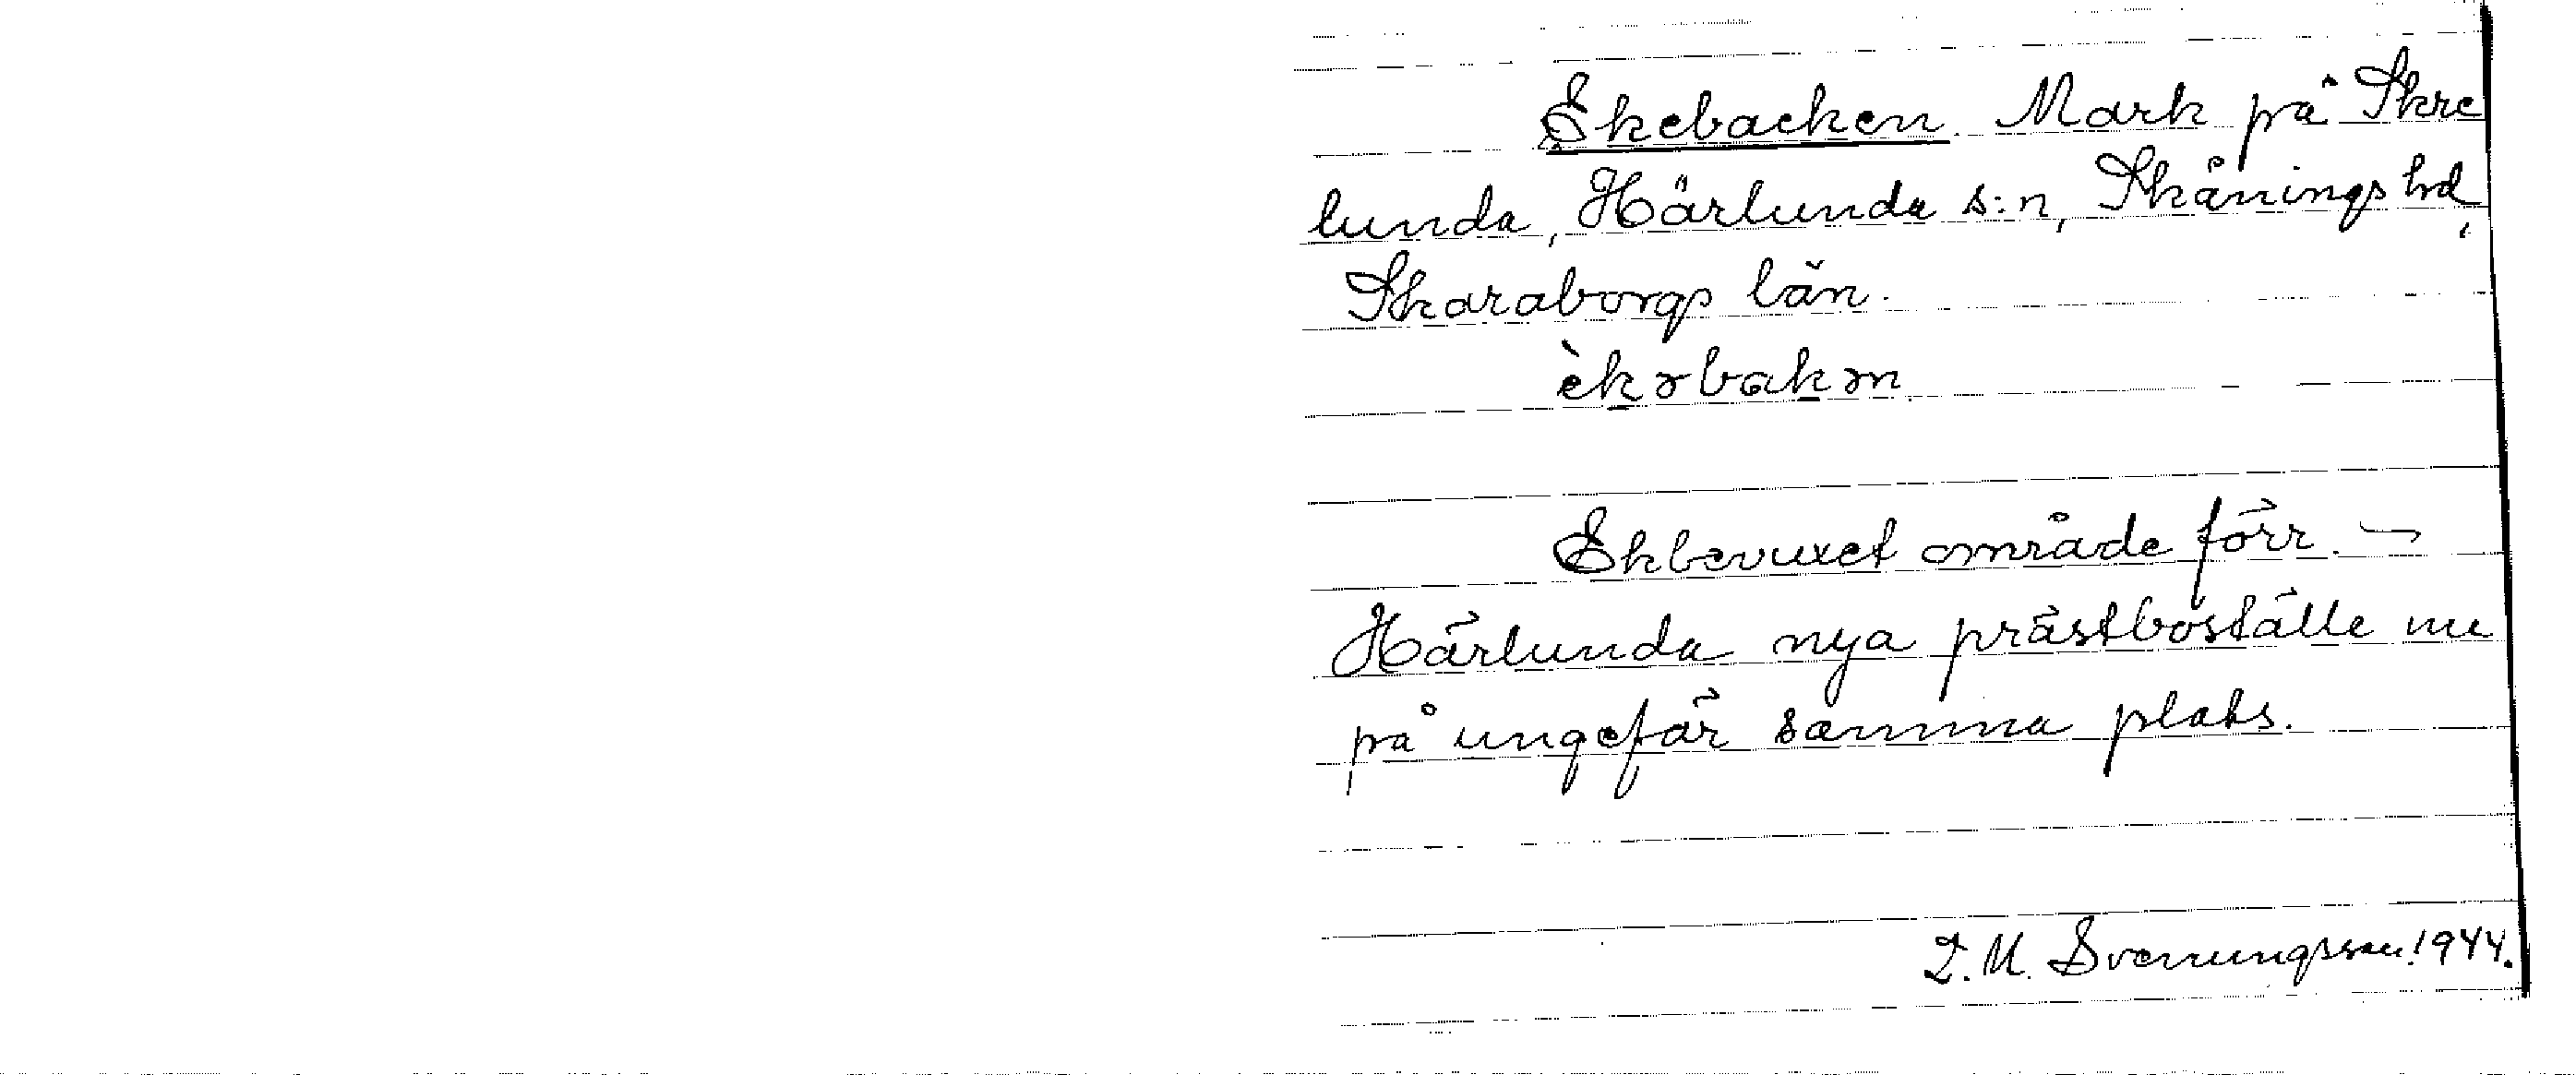 Ekebacken. Mark på Skre
lunda, Härlunda s:n, Skånings hd,
Skaraborgs län.
èkəbakən
Ekbevuxet område förr. –
Härlunda nya prästboställe nu
på ungefär samma plats.
L. M. Svenungsson. 1944.